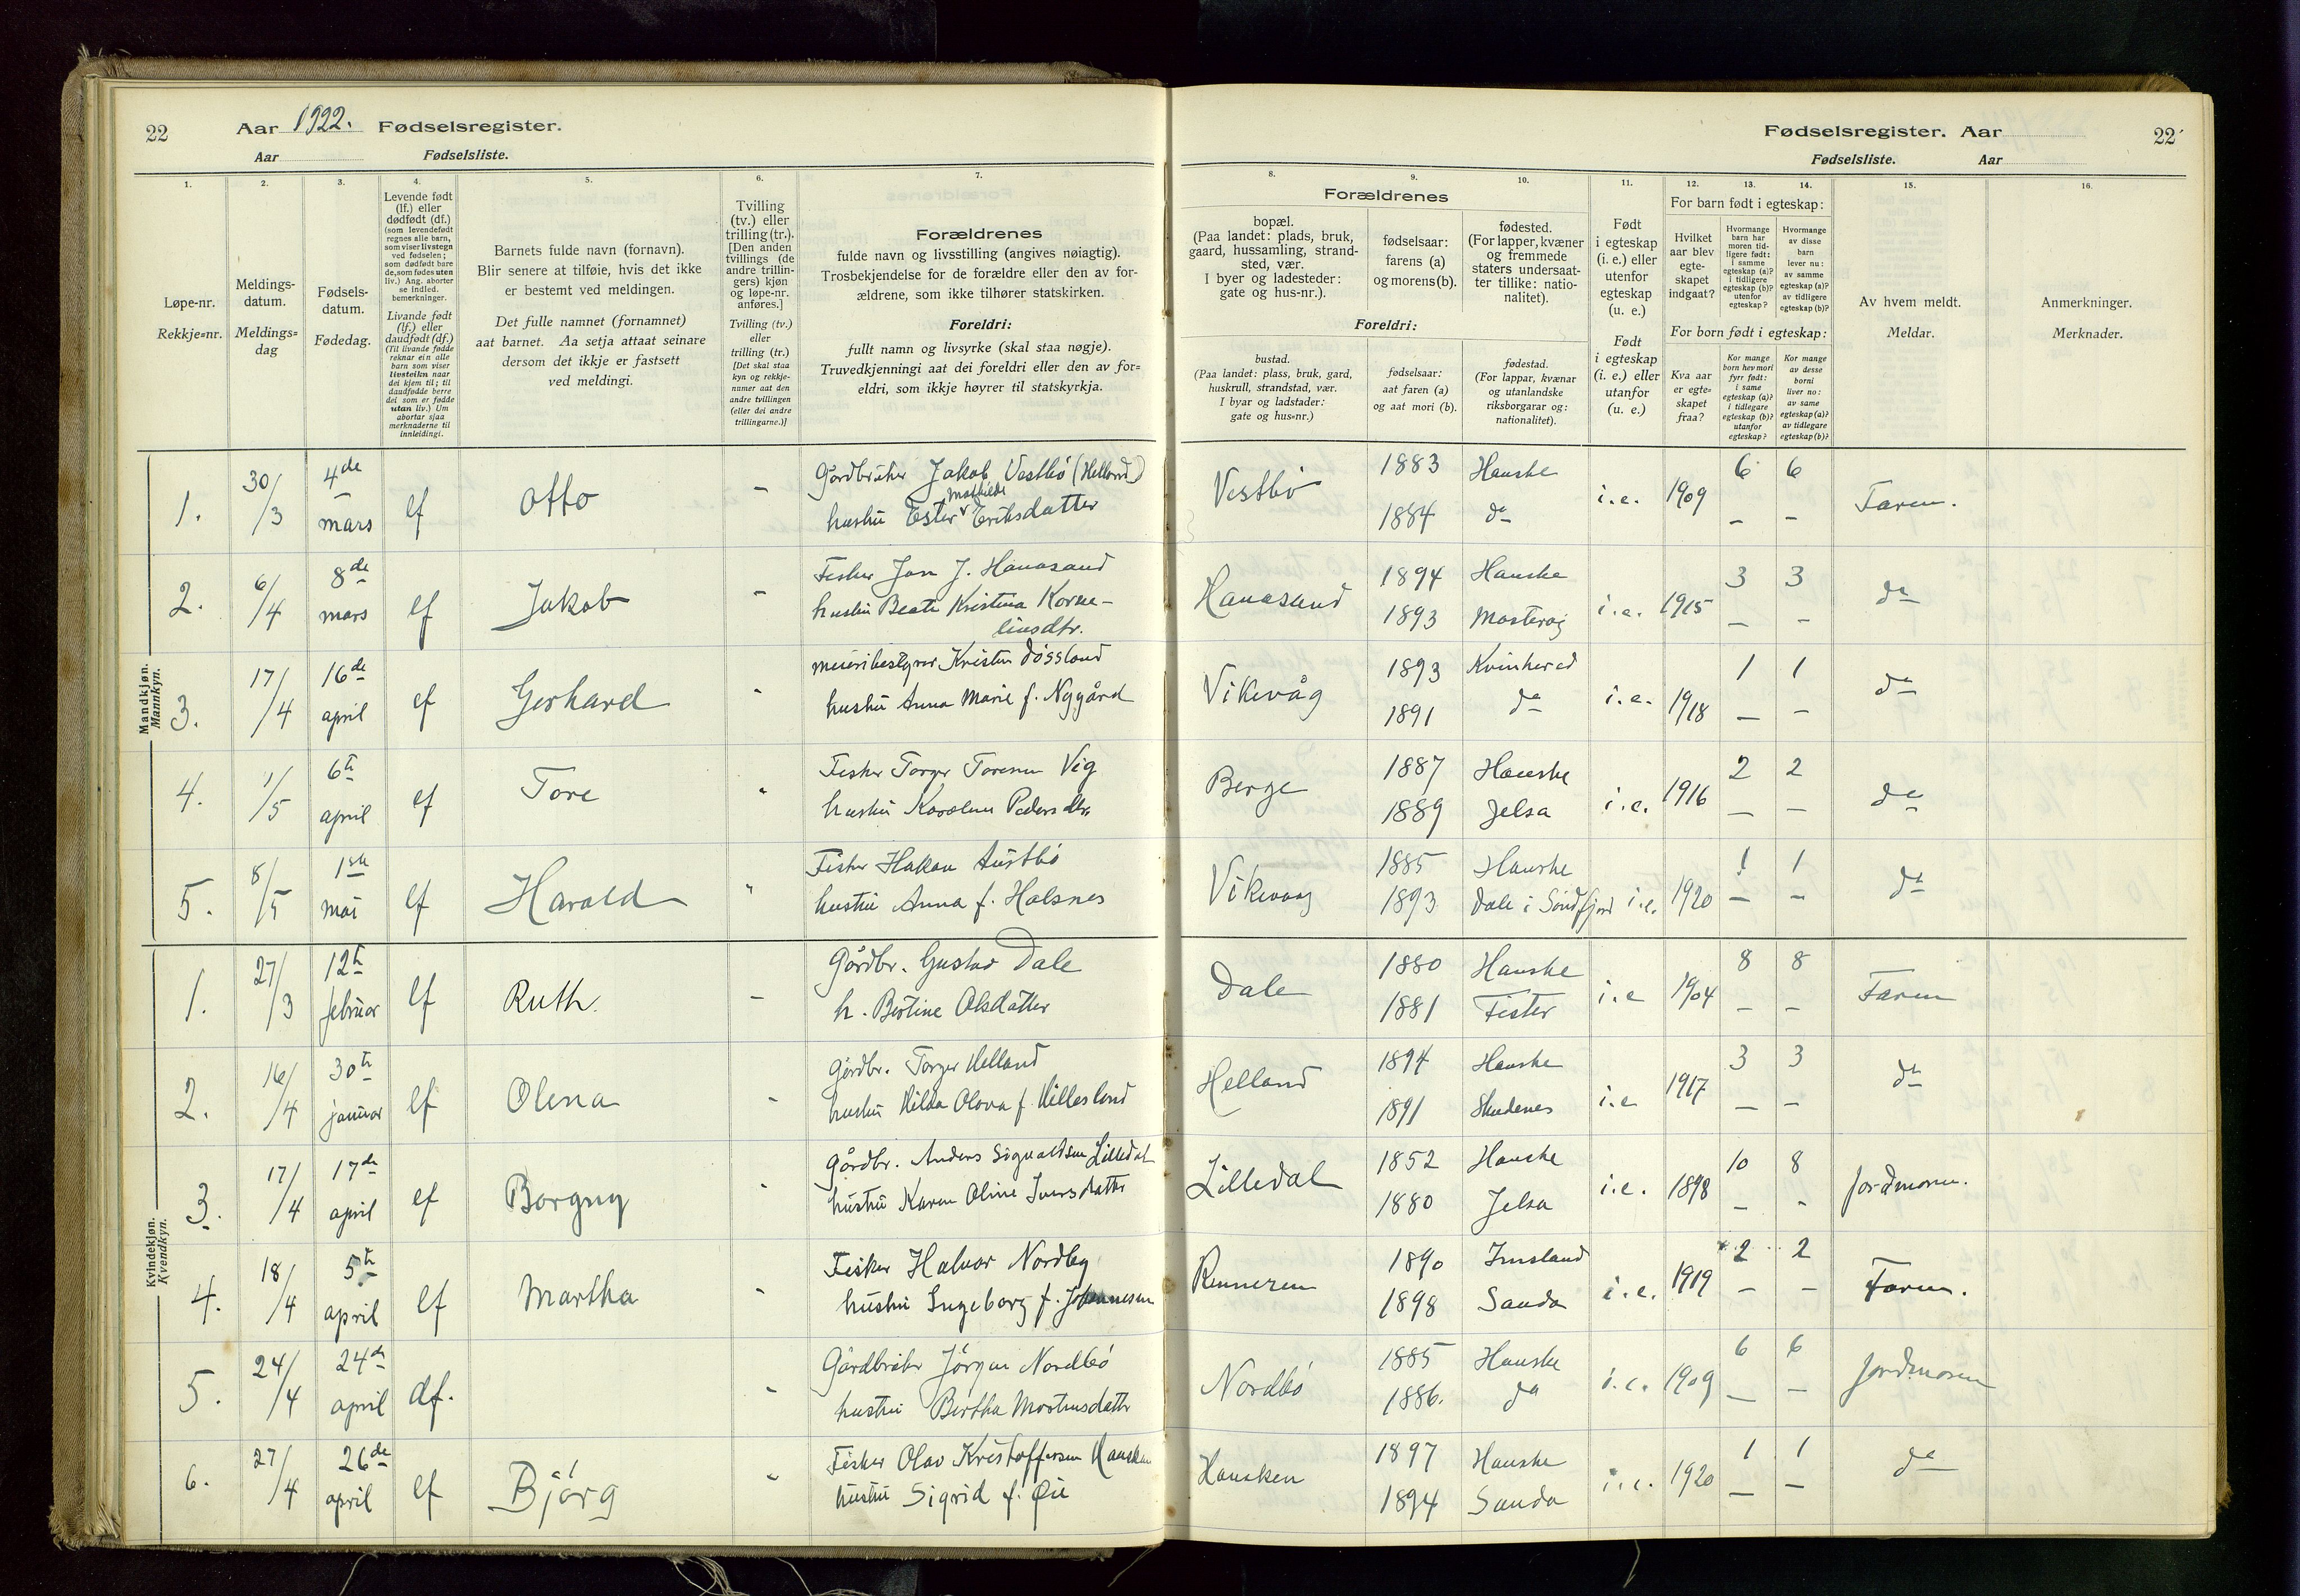 22
Aar 1922. Fødselsregister.
Aar Fødselsliste.
Fødselsregister. Aar
22
Fødselsliste. Aar
1.
2.
3.
4.
5.
6.
7.
8.
9.
10.
11.
12.
13.
14.
15.
16.
Løpe-nr.
Rekkje=nr.
Meldings-
datum.
Meldings=
dag
Fødsels-
datum.
Fødedag.
Levende født
(lf.) eller
dødfødt (df.)
(som levendefødt
regnes alle barn,
som viser livstegn
ved fødselen;
som dødfødt bare
de, som fødes uten
liv.) Ang. aborter
se indled.
bemerkninger.
Livande født
(lf.) eller
daudfødt (df.)
(Til livande fødde
reknar ein alle
barn som viser
livsteikn naar
dei kjem til; til
daudfødde berre
dei som er fødde
utan liv.) Um
abortar sjaa
merknaderne til
innleidingi.
Barnets fulde navn (fornavn).
Blir senere at tilføie, hvis det ikke
er bestemt ved meldingen.
Det fulle namnet (fornamnet)
aat barnet. Aa setja attaat seinare
dersom det ikkje er fastsett
ved meldingi.
Tvilling
(tv.) eller
trilling (tr.).
[Den anden
tvillings (de
andre trillin-
gers) kjøn
og løpe-nr.
anføres.]
Tvilling (tv.)
eller
trilling (tr.)
[Det skal staa
kyn og rekkje-
numer aat den
andre tvillingen
(eller dei andre
trillingarne.)]
Forældrenes
fulde navn og livsstilling (angives nøiagtig).
Trosbekjendelse for de forældre eller den av for-
ældrene, som ikke tilhører statskirken.
Foreldri:
fullt namn og livsyrke (skal staa nøgje).
Truvedkjenningi aat dei foreldri eller den av for=
eldri, som ikkje høyrer til statskyrkja.
Forældrenes
bopæl.
(Paa landet: plads, bruk,
gaard, hussamling, strand-
sted, vær.
I byer og ladesteder:
gate og hus-nr.).
fødselsaar:
farens (a)
og morens (b).
fødested.
(For lapper, kvæner
og fremmede
staters undersaat-
ter tillike: natio-
nalitet).
Foreldri:
bustad.
(Paa landet: plass, bruk, gard,
huskrull, strandstad, vær.
I byar og ladstader:
gate og hus=nr.)
fødselsaar:
aat faren (a)
og aat mori (b).
fødestad.
(For lappar, kvænar
og utanlandske
riksborgarar og:
nationalitet).
Født
i egteskap
(i. e.) eller
utenfor
egteskap
(u. e.)
Født
i egteskap
(i. e.) eller
utanfor
(u. e.)
For barn født i egteskap:
Hvilket
aar blev
egte-
skapet
indgaat?
Hvormange
barn har
moren tid-
ligere født:
i samme
egteskap (a)?
i tidligere
egteskap (b)?
utenfor
egteskap?
Hvormange
av disse
barn
lever nu:
av samme
egteskap (a)?
av tidligere
egteskap (b)?
For born født i egteskap:
Kva aar
er egte-
skapet
fraa?
Kor mange
born hev mori
fyrr født:
i same
egteskap (a)?
i tidlegare
egteskap (b)?
utanfor
egteskap?
Kor mange
av desse
borni
liver no:
av same
egteskap (a)?
av tidlegare
egteskap (b)?
Av hvem meldt.
Meldar.
Anmerkninger.
Merknader.
Mandkjøn.
Mannkyn.
1. 30/3 4de mars lf Otto – Gårdbruker Jakob Vestbö (Helland) hustru Ester Mathilde Eriksdatter Vestbö 1883 Hauske 1884 do i.e. 1909 6 6 – – Faren.
2. 6/4 8de mars lf Jakob – Fisker Jon J. Hanasand hustru Beate Kristina Korne-
liusdtr. Hanasand 1894 Hauske 1893 Mosterøy i.e. 1915 3 3 – – do
3. 17/4 16de april lf Gerhard " meieribestyrer Kristen Døssland hustru Anna Marie f. Nygård Vikevåg 1893 Kvinherad 1891 do i.e. 1918 1 1 – – do
4. 1/5 6te april lf Tore " Fisker Torger Toresen Vig hustru Karoline Pedersdtr. Berge 1887 Hauske 1889 Jelsa i.e. 1916 2 2 – – do
5. 8/5 1ste mai lf Harald " Fisker Hakon Austbö hustru Anna f. Halsnes Vikevaag 1885 Hauske 1893 Dale i Söndfjord i.e. 1920 1 1 – – do
Kvindekjøn.
Kvendkyn.
1. 27/3 12te februar lf Ruth. – Gårdbr. Gustav Dale h. Bertine Olsdatter Dale 1880 Hauske 1881 Fister i.e 1904 8 8 – – Faren
2. 16/4 30te januar lf Olena – Gårdbr. Torger Helland hustru Hilda Olava f. Hillesland Helland 1894 Hauske 1891 Skudenes i.e 1917 3 3 – – do
3. 17/4 17de april lf Borgny " Gårdbr. Anders Sigvaldsen Lilledal hustru Karen Oline Iversdatter Lilledal 1852 Hauske 1880 Jelsa i.e. 1898 10 8 – – Jordmoren.
4. 18/4 5te april lf Martha – Fisker Halvor Nordby hustru Ingeborg f. Johannesen 1890 Imsland 1898 Sauda i.e. 1919 2 2 – – Faren.
5. 24/4 24de april df. – Gårdbruker Jörgen Nordbö hustru Bertha Mostrusdatter Nordbö 1885 Hauske 1886. do i.e. 1909 6 6 – – Jordmoren
6. 27/4 26de april lf Björg " Fisker Olav Kristoffersen Hausken hustru Sigrid f. Øie Hausken 1897 Hauske 1894 Sauda i.e. 1920 1 1 – – do